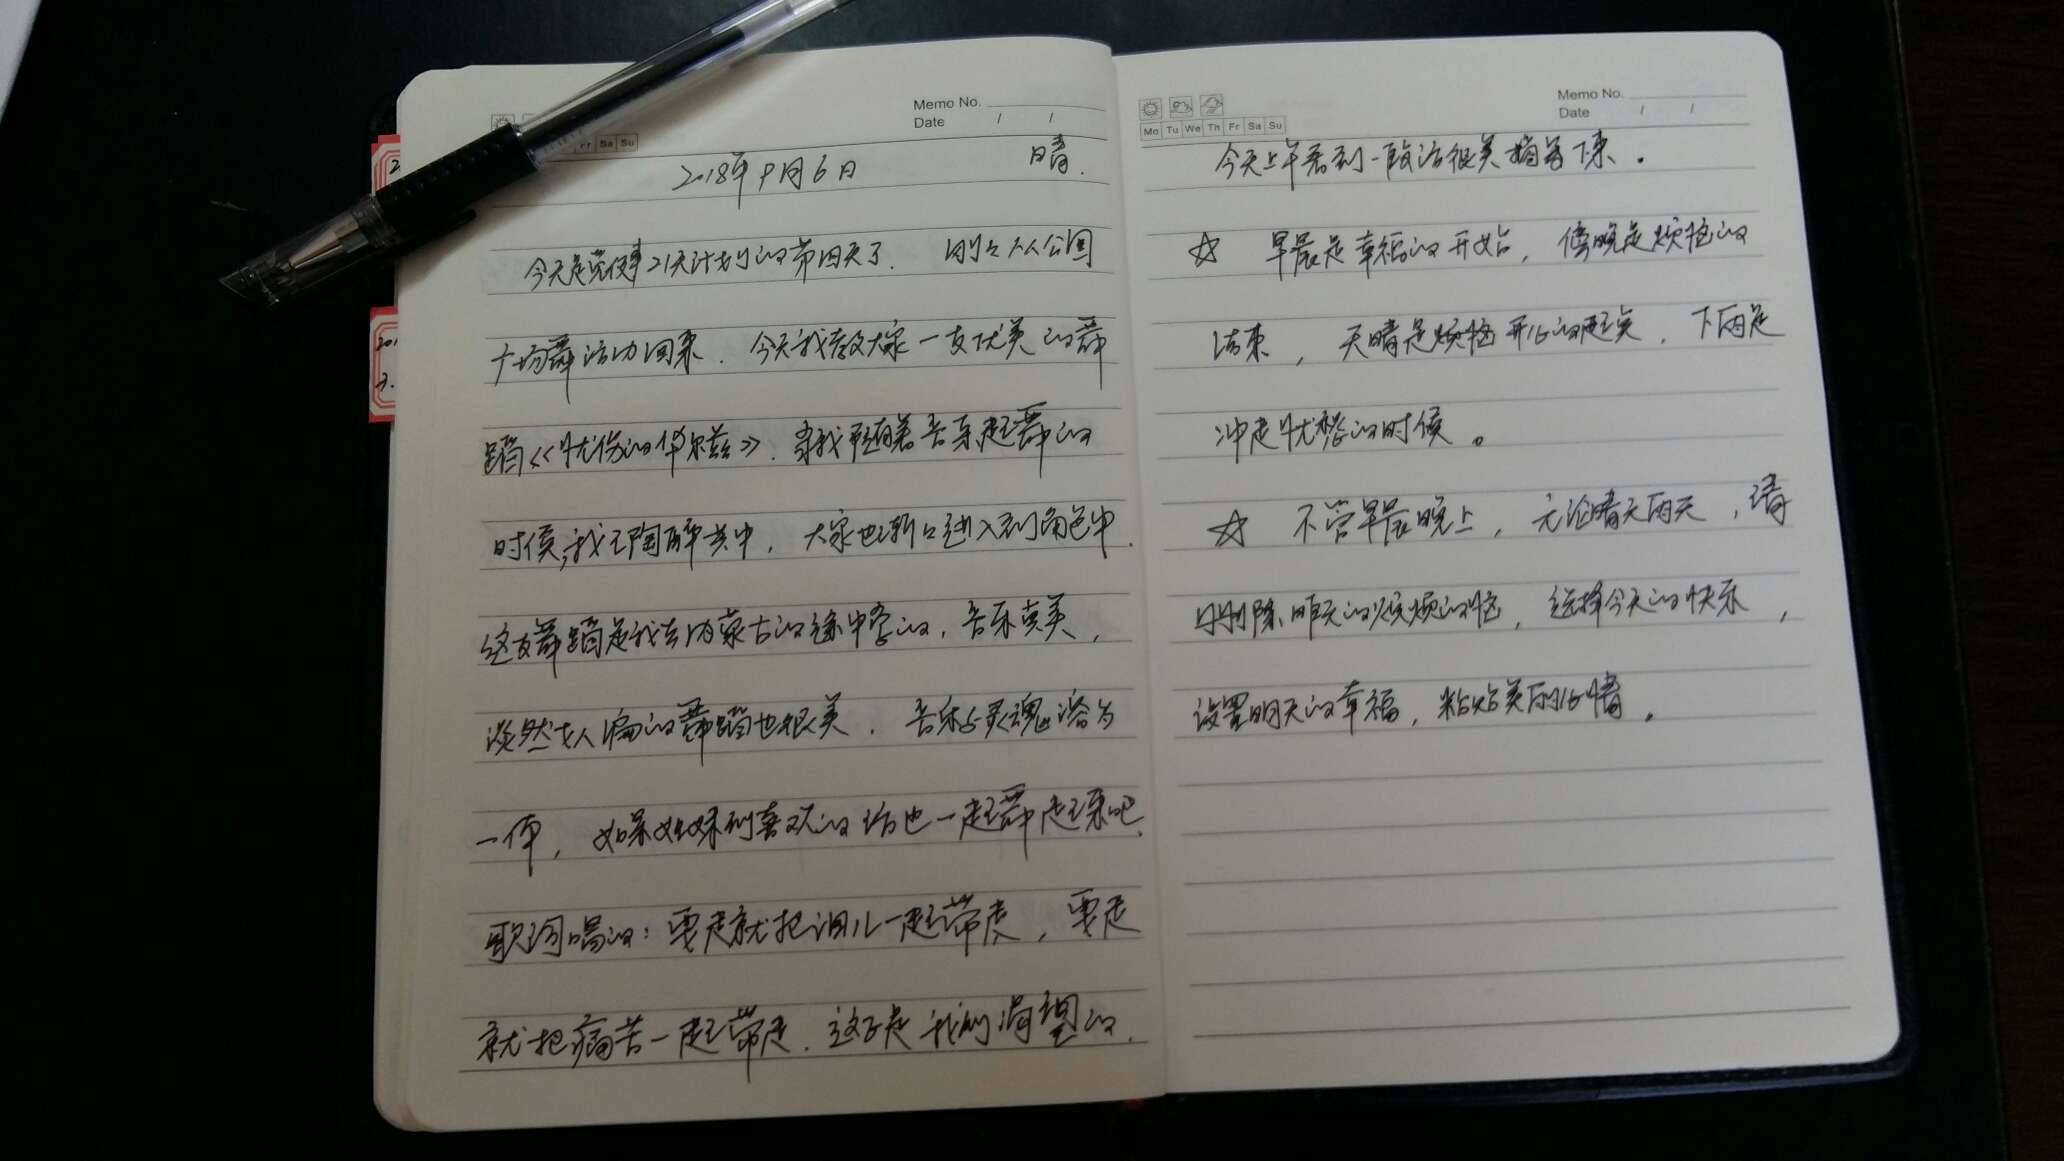 Memo No.
Date / /
Fr Sa Su
2018年9月6日 晴.
今天是 21天计划的第四天了. 刚刚从公园
广场舞活动回来. 今天我教大家一支优美的舞
蹈《忧伤的华尔兹》. 当我随着音乐起舞的
时候,我已陶醉其中, 大家也渐渐进入到角色中.
这支舞蹈是我去内蒙古的途中学的, 音乐真美,
人编的舞蹈也很美. 音乐与灵魂溶为
一体, 如果姐妹们喜欢的话也一起舞起来吧.
歌词唱的: 要走就把泪儿一起带走, 要走
就把痛苦一起带走. 这不是我们渴望的.
Memo No.
Date / /
Mo Tu We Th Fr Sa Su
今天上午看到一段话很美摘写下来。
☆ 早晨是幸福的开始, 傍晚是烦恼的
结束, 天晴是烦恼开心的起点, 下雨是
冲走忧愁的时候。
☆ 不管早晨晚上, 无论晴天雨天, 请
删除昨天的烦恼, 选择今天的快乐,
设置明天的幸福, 粘贴美丽心情。